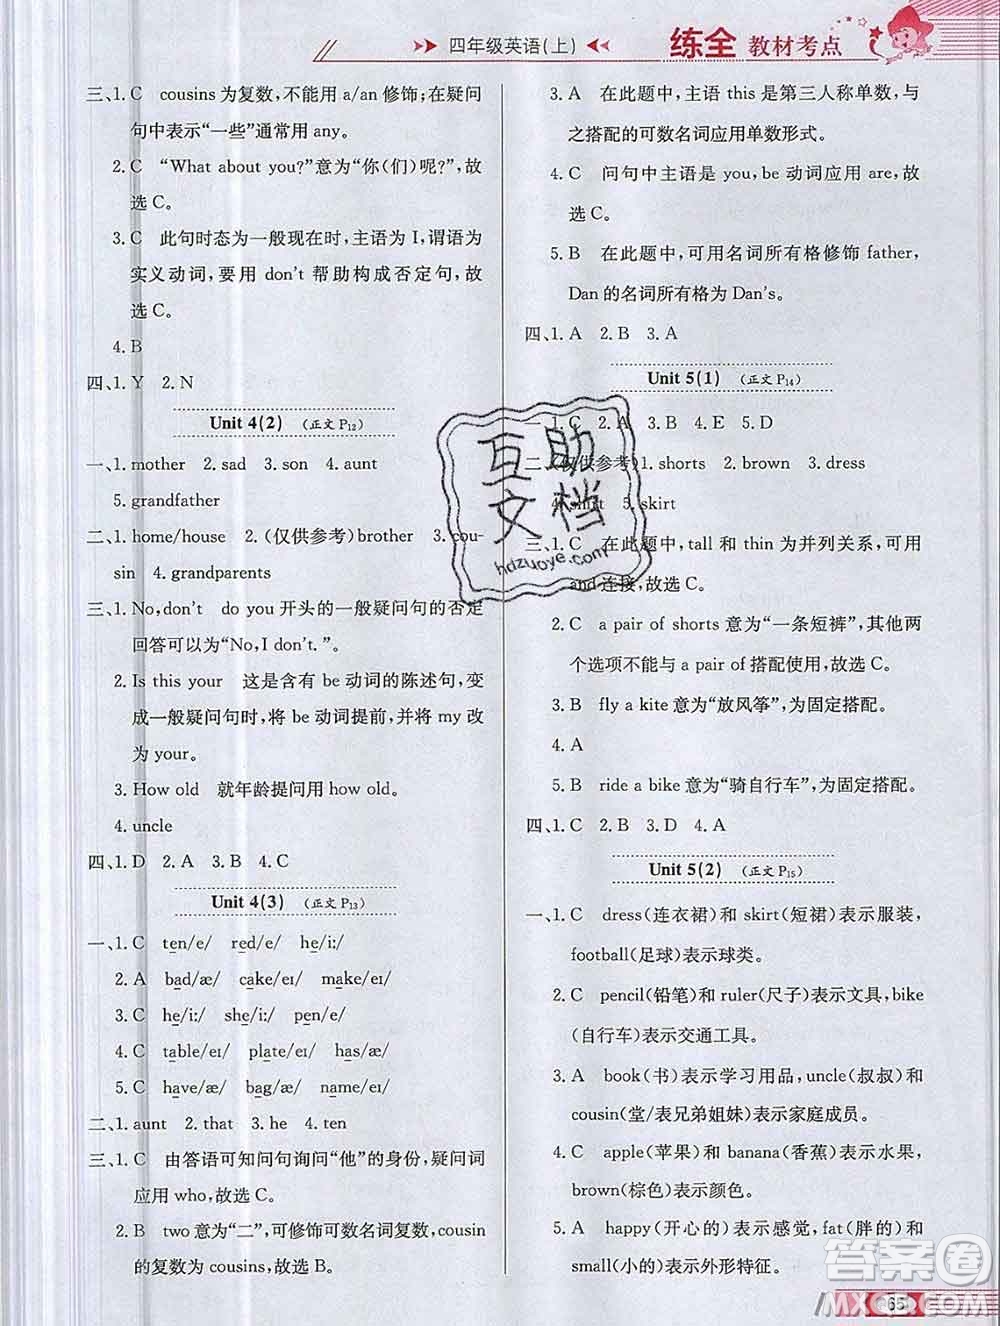 四年级英语(上)
练全 教材考点
三、1. C cousins 为复数,不能用 a/an 修饰;在疑问
句中表示“一些”通常用 any。
2. C “What about you?”意为“你(们)呢?”,故
选 C。
3. C 此句时态为一般现在时,主语为 I,谓语为
实义动词,要用 don't 帮助构成否定句,故
选 C。
4. B
四、1. Y 2. N
Unit 4(2) (正文 P12)
一、1. mother 2. sad 3. son 4. aunt
5. grandfather
二、1. home/house 2. (仅供参考)brother 3. cou-
sin 4. grandparents
三、1. No,don't do you 开头的一般疑问句的否定
回答可以为“No,I don't. ”。
2. Is this your 这是含有 be 动词的陈述句,变
成一般疑问句时,将 be 动词提前,并将 my 改
为 your。
3. How old 就年龄提问用 how old。
4. uncle
四、1. D 2. A 3. B 4. C
Unit 4(3) (正文 P13)
一、1. C ten/e/ red/e/ he/iː/
2. A bad/æ/ cake/eɪ/ make/eɪ/
3. C he/iː/ she/iː/ pen/e/
4. C table/eɪ/ plate/eɪ/ has/æ/
5. C have/æ/ bag/æ/ name/eɪ/
二、1. aunt 2. that 3. he 4. ten
三、1. C 由答语可知问句询问“他”的身份,疑问词
应用 who,故选 C。
2. B two 意为“二”,可修饰可数名词复数,cousin
的复数为 cousins,故选 B。
3. A 在此题中,主语 this 是第三人称单数,与
之搭配的可数名词应用单数形式。
4. C 问句中主语是 you,be 动词应用 are,故
选 C。
5. B 在此题中,可用名词所有格修饰 father,
Dan 的名词所有格为 Dan's。
四、1. A 2. B 3. A
Unit 5(1) (正文 P14)
一、1. C 2. A 3. B 4. E 5. D
二、(仅供参考)1. shorts 2. brown 3. dress
4. shirt 5. skirt
三、1. C 在此题中,tall 和 thin 为并列关系,可用
and 连接,故选 C。
2. C a pair of shorts 意为“一条短裤”,其他两
个选项不能与 a pair of 搭配使用,故选 C。
3. B fly a kite 意为“放风筝”,为固定搭配。
4. A
5. B ride a bike 意为“骑自行车”,为固定搭配。
四、1. C 2. B 3. D 4. A
Unit 5(2) (正文 P15)
一、1. C dress(连衣裙)和 skirt(短裙)表示服装,
football(足球)表示球类。
2. C pencil(铅笔)和 ruler(尺子)表示文具,bike
(自行车)表示交通工具。
3. A book(书)表示学习用品,uncle(叔叔)和
cousin(堂/表兄弟姐妹)表示家庭成员。
4. C apple(苹果)和 banana(香蕉)表示水果,
brown(棕色)表示颜色。
5. A happy(开心的)表示感觉,fat(胖的)和
small(小的)表示外形特征。
65
互助
文档
hdzuoye.com
答案圈
MXQE.COM